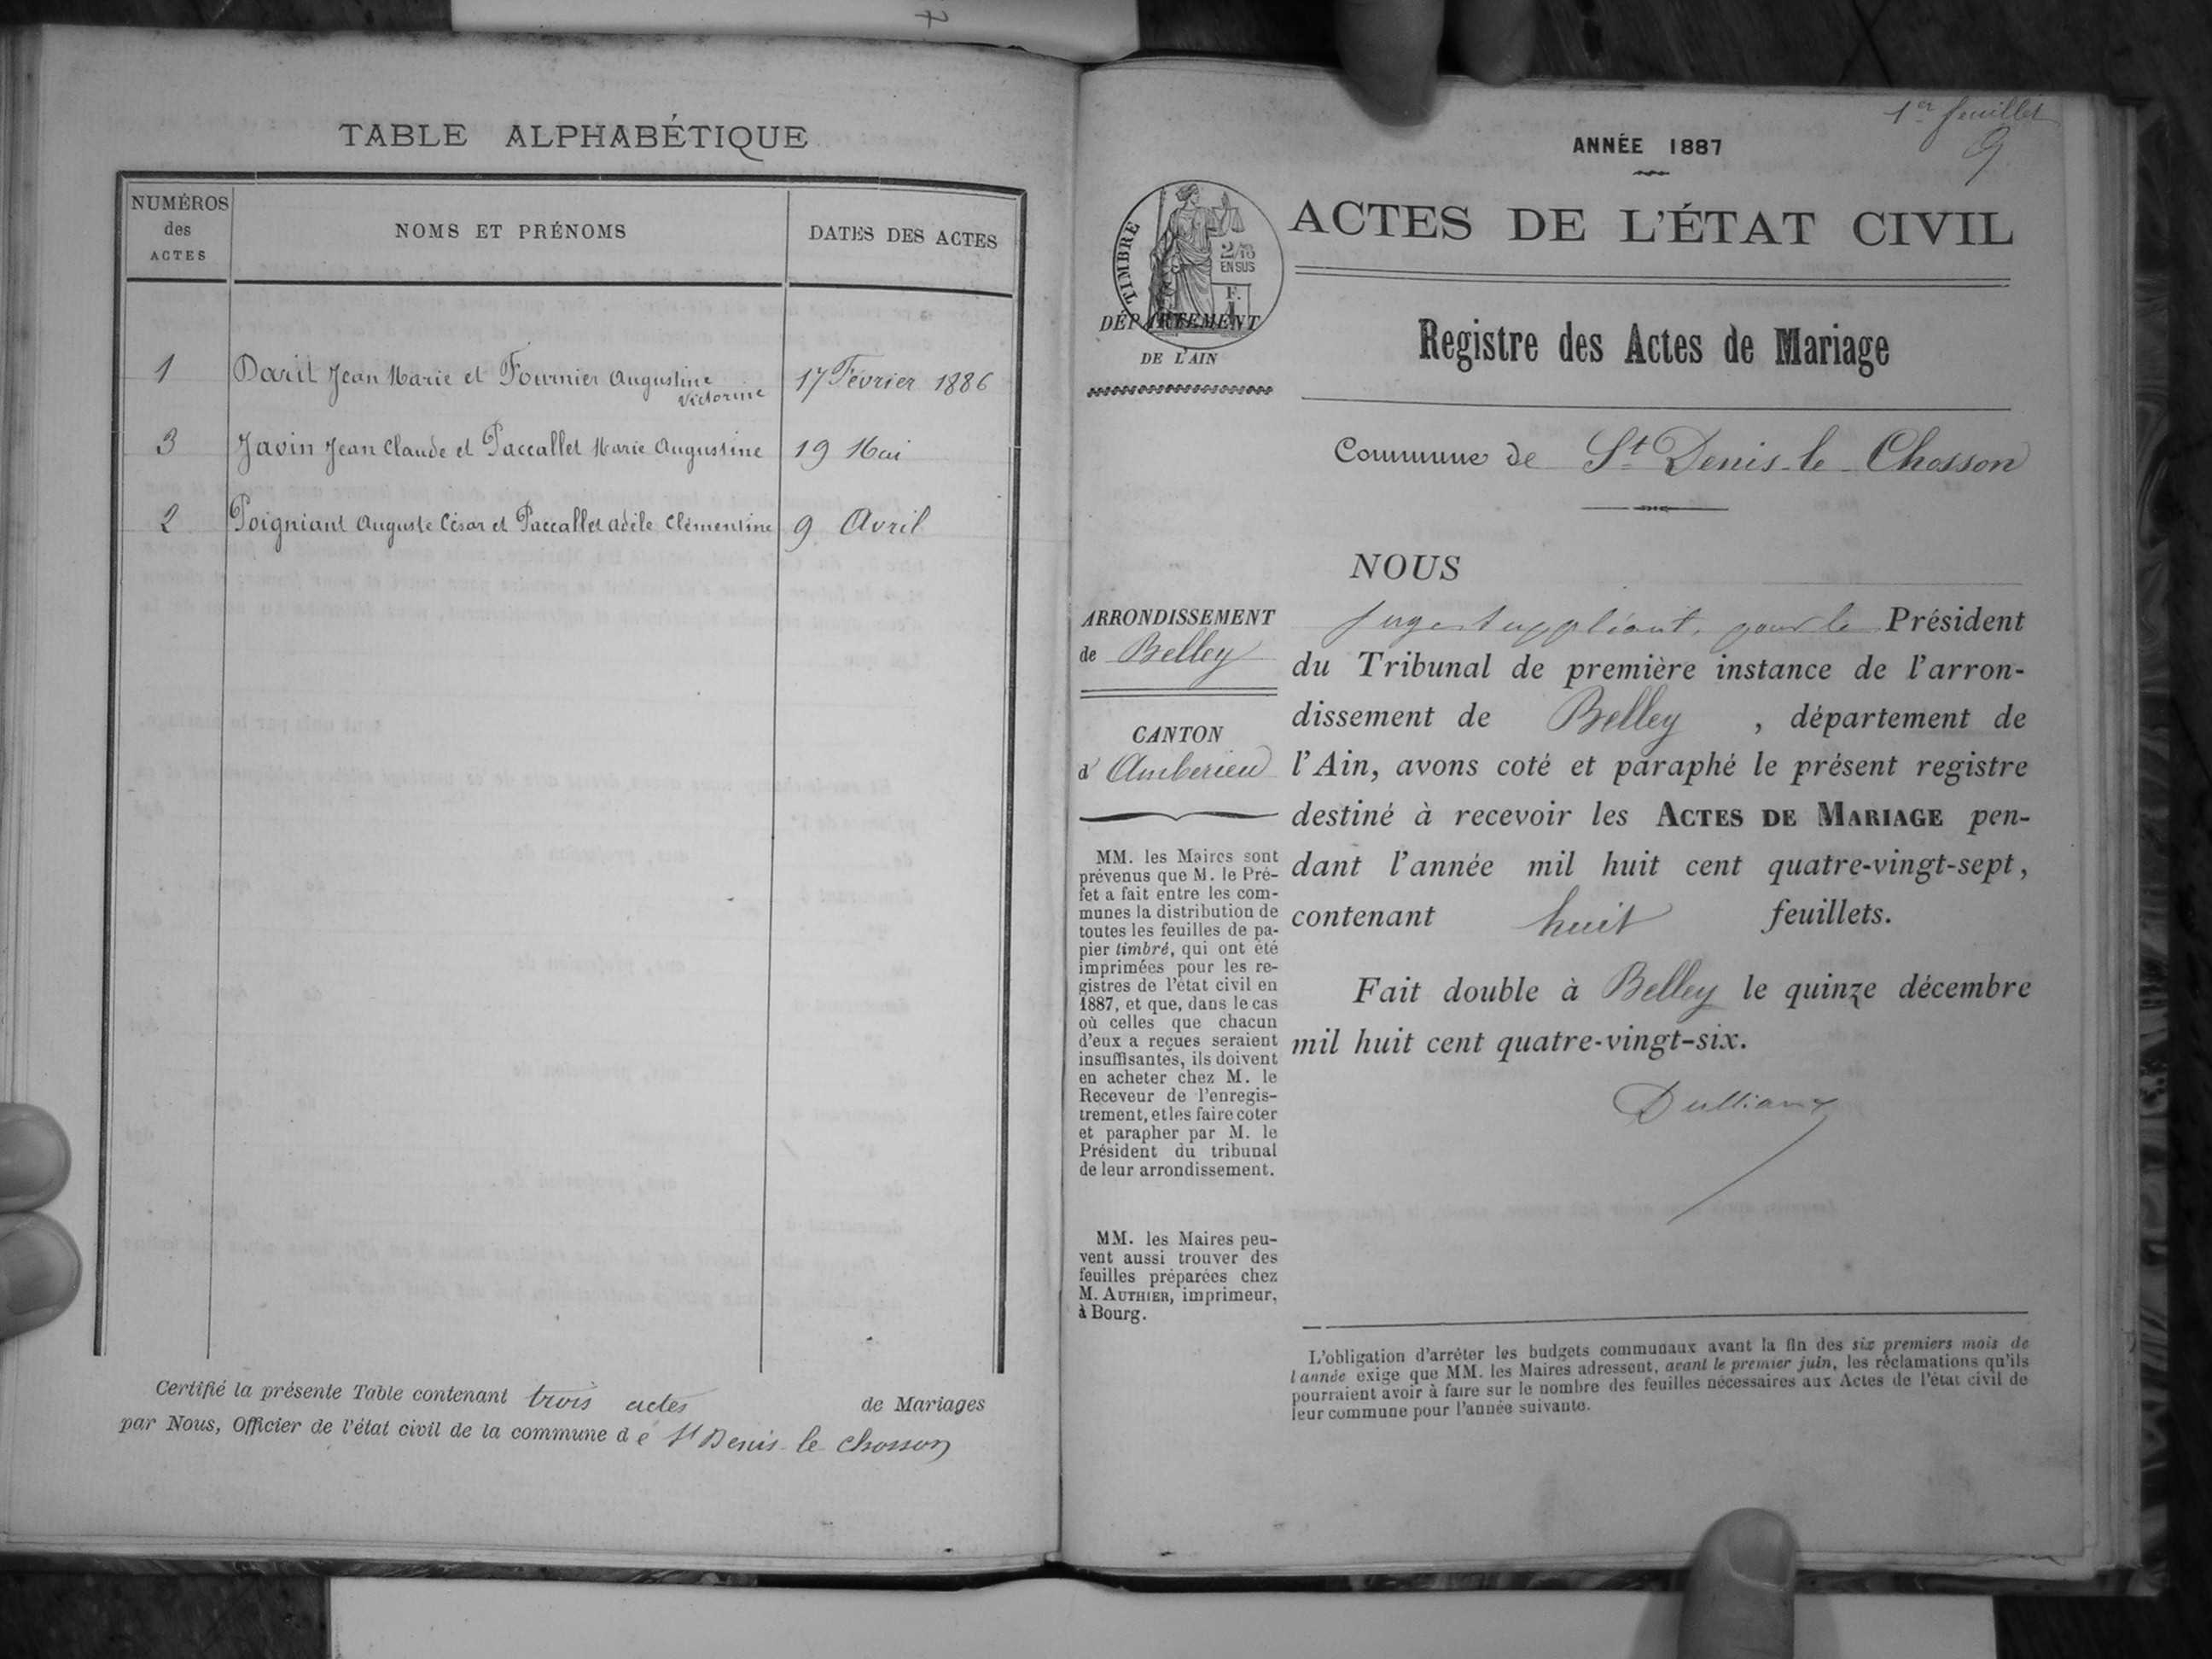 TABLE ALPHABÉTIQUE
NUMÉROS des ACTES | NOMS ET PRÉNOMS | DATES DES ACTES
1 Darit Jean Marie et Fournier Augustine Victorine 17 Fevrier 1886
3 Javin Jean Claude et Paccallet Marie Augustine 19 Mai
2 Poigniant Auguste César et Paccallet Adèle Clémentine 9 Avril
Certifié la présente Table contenant trois actes de Mariages
par Nous, Officier de l'état civil de la commune de St Denis le Chosson
1er feuillet
9
ANNÉE 1887
TIMBRE
2/10
EN SUS
F.
DÉPARTEMENT
DE L'AIN
ACTES DE L'ÉTAT CIVIL
Registre des Actes de Mariage
Commune de St Denis-le-Chosson
ARRONDISSEMENT
de Belley
CANTON
d'Amberieu
MM. les Maires sont
prévenus que M. le Pré-
fet a fait entre les com-
munes la distribution de
toutes les feuilles de pa-
pier timbré, qui ont été
imprimées pour les re-
gistres de l'état civil en
1887, et que, dans le cas
où celles que chacun
d'eux a reçues seraient
insuffisantes, ils doivent
en acheter chez M. le
Receveur de l'enregis-
trement, et les faire coter
et parapher par M. le
Président du tribunal
de leur arrondissement.
MM. les Maires peu-
vent aussi trouver des
feuilles préparées chez
M. AUTHIER, imprimeur,
à Bourg.
NOUS
Juge suppléant, pour le Président
du Tribunal de première instance de l'arron-
dissement de Belley, département de
l'Ain, avons coté et paraphé le présent registre
destiné à recevoir les ACTES DE MARIAGE pen-
dant l'année mil huit cent quatre-vingt-sept,
contenant huit feuillets.
Fait double à Belley le quinze décembre
mil huit cent quatre-vingt-six.
L'obligation d'arrêter les budgets communaux avant la fin des six premiers mois de
l'année exige que MM. les Maires adressent, avant le premier juin, les réclamations qu'ils
pourraient avoir à faire sur le nombre des feuilles nécessaires aux Actes de l'état civil de
leur commune pour l'année suivante.